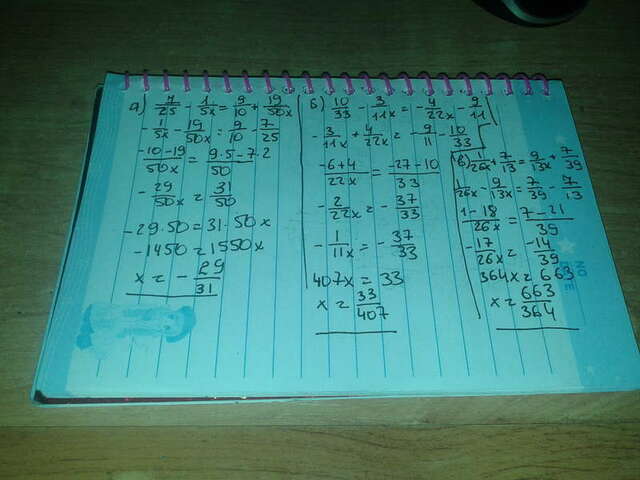 а) 7/25 - 1/5x = 9/10 + 19/50x
- 1/5x - 19/50x = 9/10 - 7/25
-10-19/50x = 9·5-7·2/50
- 29/50x = 31/50
-29·50 = 31·50x
-1450 = 1550x
x = - 29/31
б) 10/33 - 3/11x = - 4/22x - 9/11
- 3/11x + 4/22x = - 9/11 - 10/33
-6+4/22x = -27-10/33
- 2/22x = - 37/33
- 1/11x = - 37/33
407x = 33
x = 33/407
в) 1/26x + 7/13 = 9/13x + 7/39
1/26x - 9/13x = 7/39 - 7/13
1-18/26x = 7-21/39
-17/26x = -14/39
364x = 663
x = 663/364